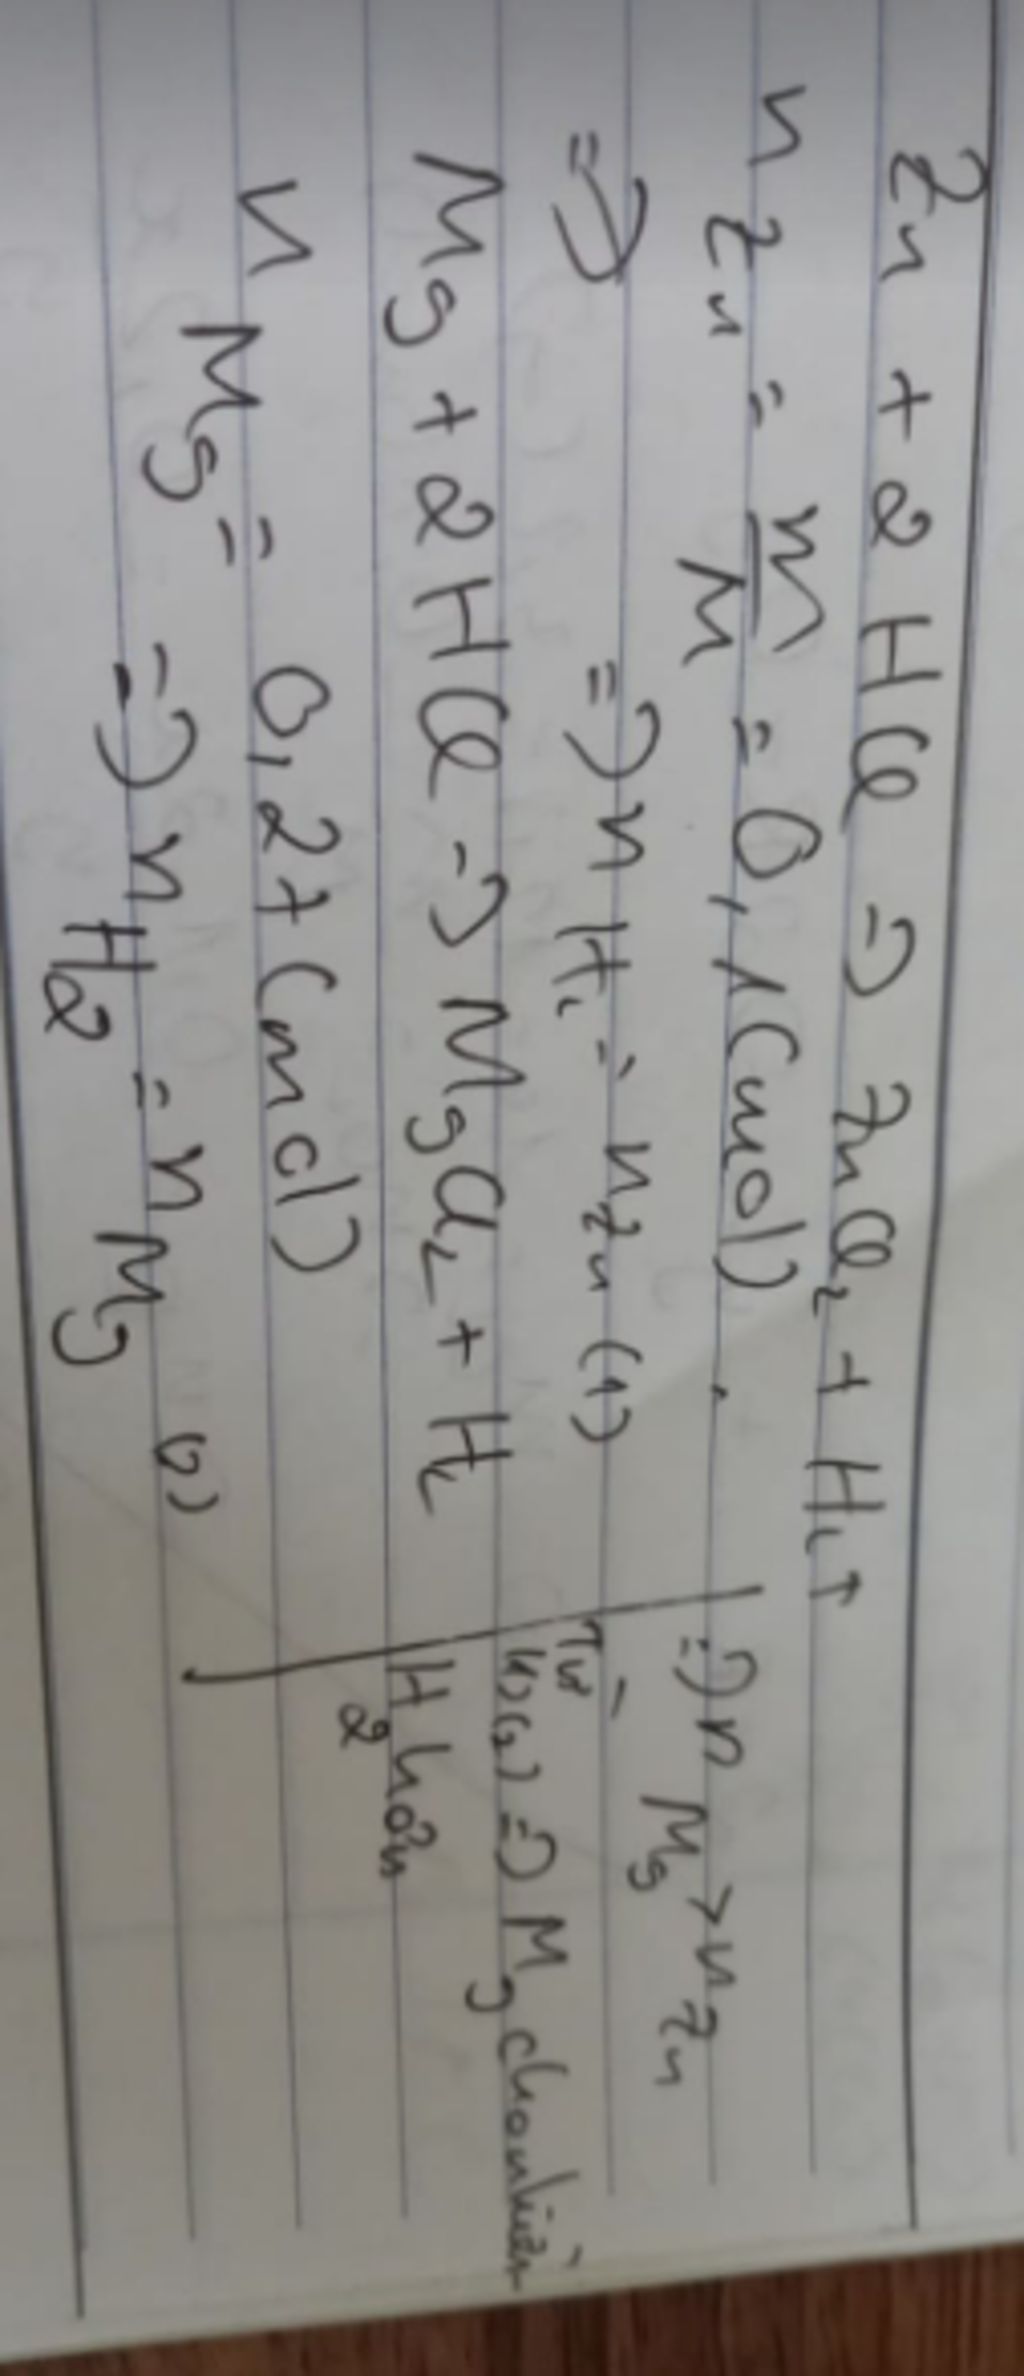 Zn + 2HCl => ZnCl₂ + H₂↑
n Zn = m/M = 0,1 (mol)
=> => n H₂ = n Zn (1)
Mg + 2HCl -> MgCl₂ + H₂
n Mg = 0,27 (mol)
=> n H₂ = n Mg (2)
=> n Mg > n Zn
Từ (1) (2) => Mg cho nhiều
H₂ hơn